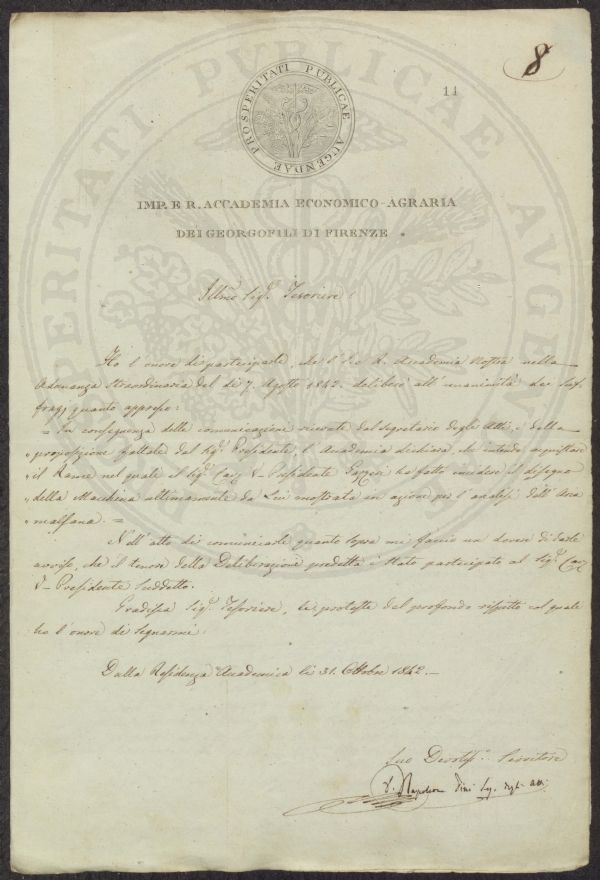 8
11
PROSPERITATI PUBLICAE AUGENDAE
IMP. E R. ACCADEMIA ECONOMICO-AGRARIA
DEI GEORGOFILI DI FIRENZE
Illmo Sigr. Tesoriere
Ho l'onore di parteciparle, che l'I. e R. Accademia Nostra nella
Adunanza Straordinaria del dì 7. Agosto 1842. deliberò all'unanimità dei Suf-
fragj quanto appresso:
= In conseguenza delle comunicazioni ricevute dal Segretario degli Atti, e della
" proposizione fattale dal Sigr. Presidente, l'Accademia dichiara, che intende acquistare
" il Rame nel quale il Sigr. Cav. V. Presidente Gazzeri ha fatto incidere il disegno
" della Macchina ultimamente da Lui mostrata in azione per l'analisi dell'Aria
" malsana. =
Nell'atto di comunicarle quanto sopra mi faccio un dovere di darle
avviso, che il tenore della Deliberazione predetta è stato partecipato al Sigr. Cav.
V. Presidente Suddetto.
Gradisca Sigr. Tesoriere, le proteste del profondo rispetto col quale
ho l'onore di segnarmi
Dalla Residenza Accademica li 31. Ottobre 1842.
Suo Devotiss. Servitore
Napoleone Pini Seg. degli Atti